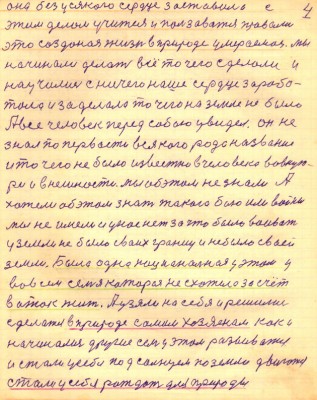 4
она без усякого сердце заставила с
этим делом учится и ползоватя правами
это создоная жизнь в природе и мераемая. мы
начинали делать всё то чего сделали и
научились с ничего наше сердце зарабо-
тала и заделало то чего на земле не было
А все человек перед собою увидел. он не
знал то первость всякого рода название
и то чего не было известно в человека во внут-
ре и внешность. мы об этом не знали А
хотели об этом знат такого бою или войны
мы не имели и у нас нет за что было воиват
у земли не было своих границ и не было своей
земли. Было одно национальная у этом у
во всем семя которая не схотило за счёт
в а так жит. А узяли на себя и решили
сделать в природе самим хозяевам как и
начинался другие сем у этом развиватя
и стали у себя под солнцем по земли двигатя
стали у себя рождат для природы